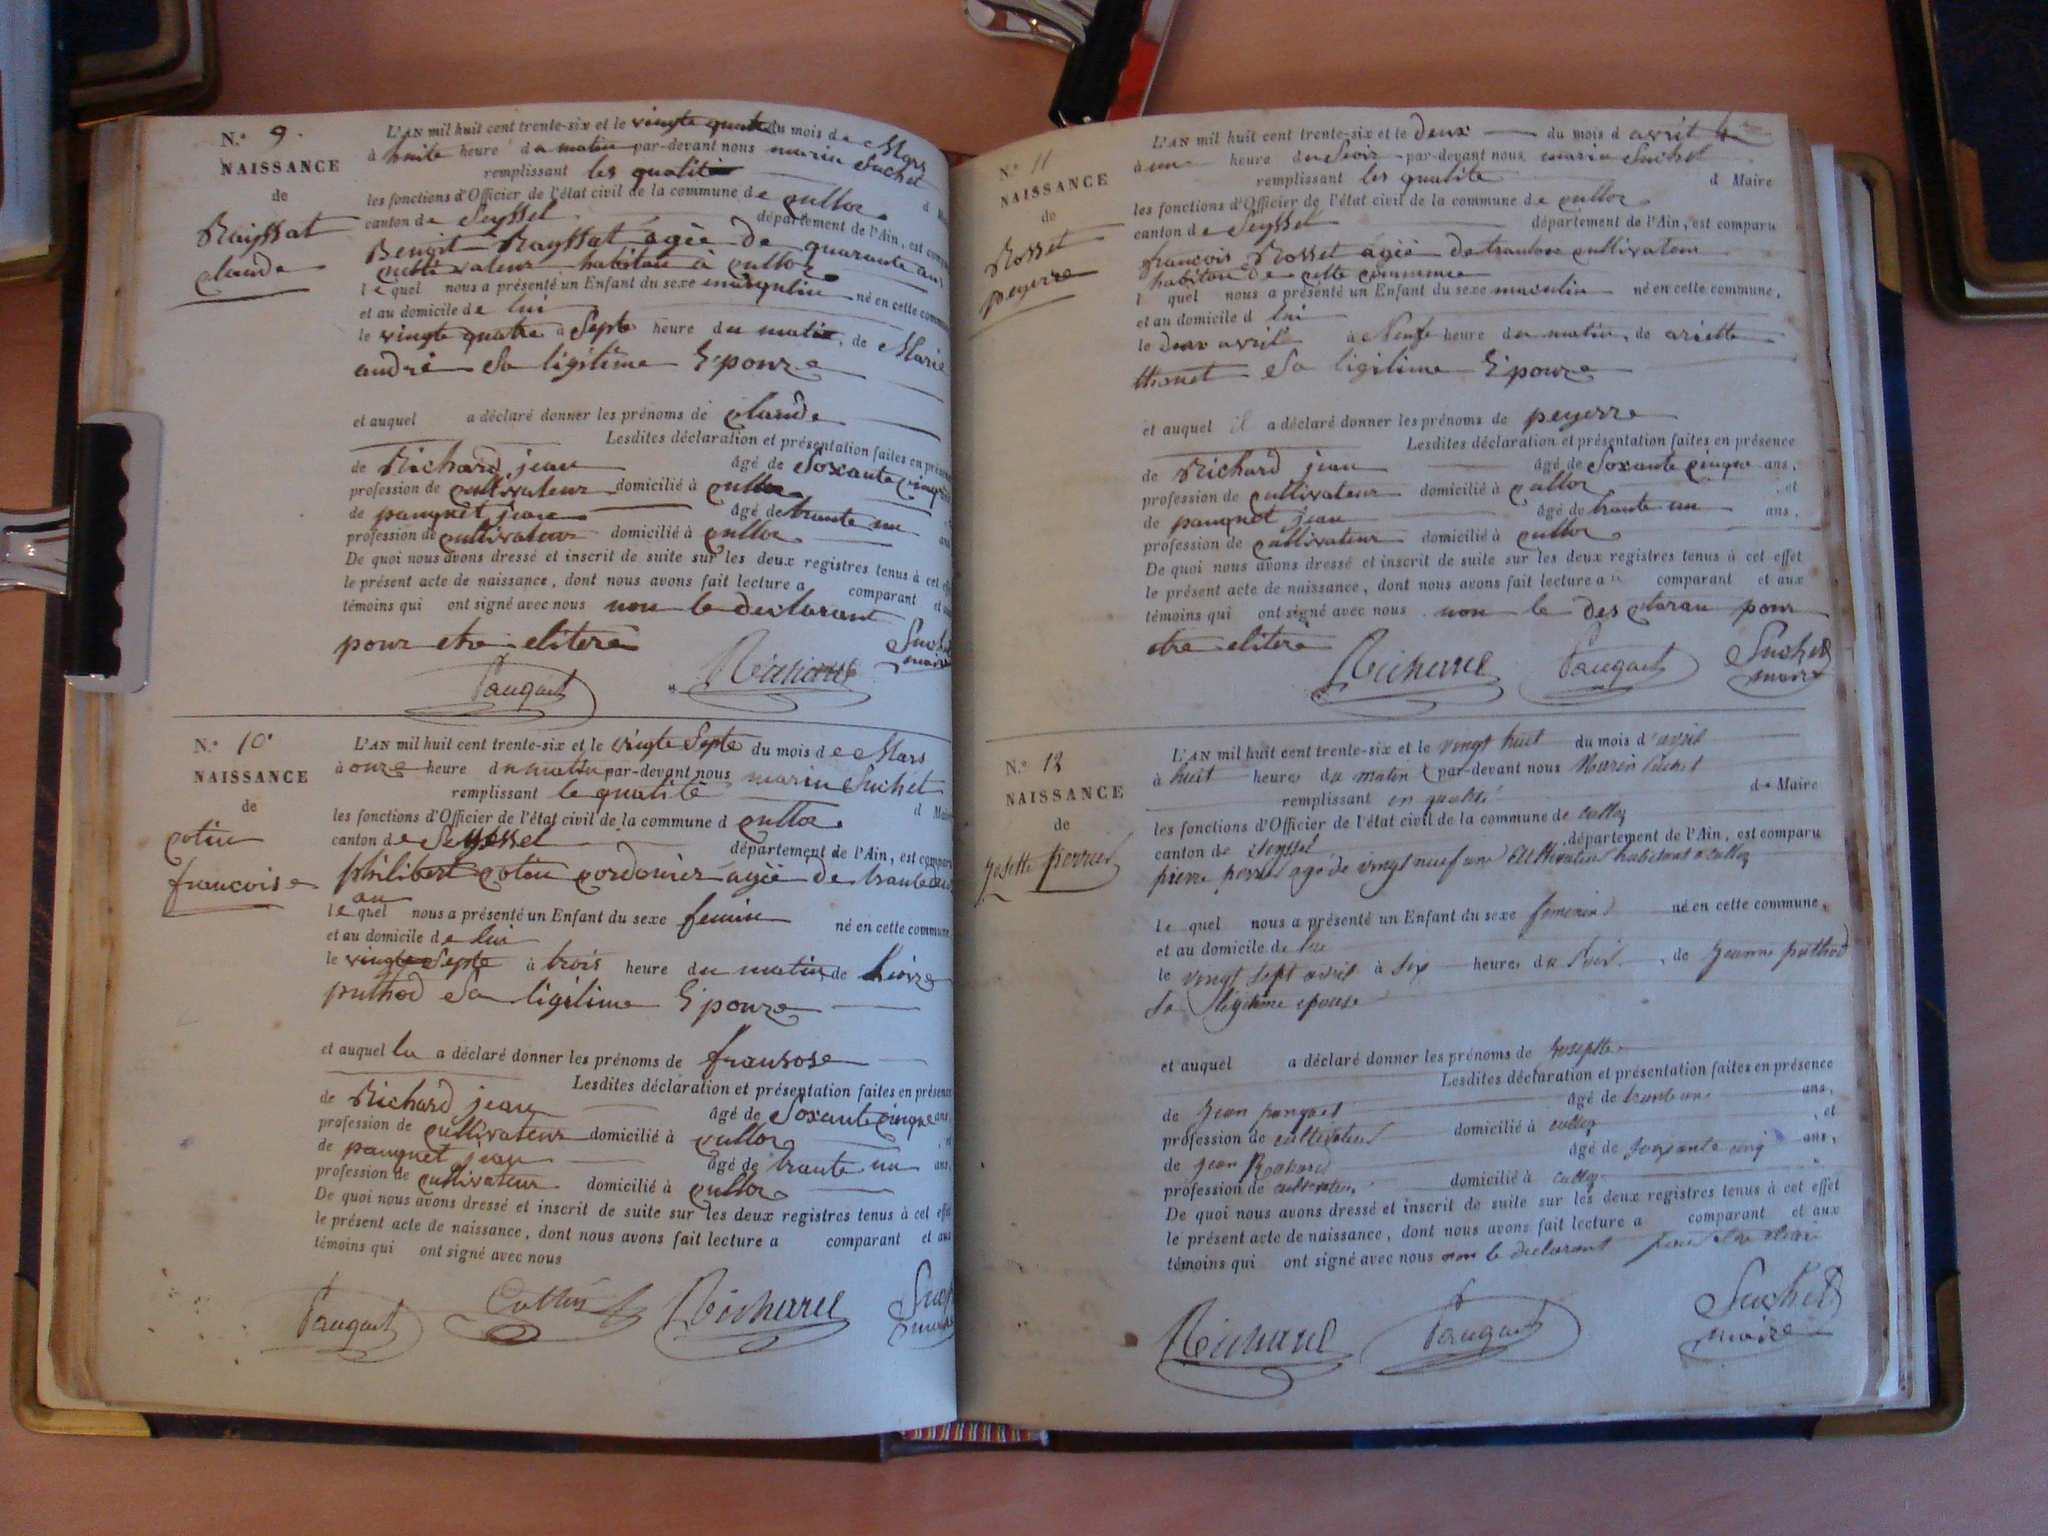 N.° 9.
NAISSANCE
de
Rayssat
claude
L'AN mil huit cent trente-six et le vingte quatre du mois de Mars
à huite heure du matin par-devant nous marin Suchet
remplissant les qualité d Maire
les fonctions d'Officier de l'état civil de la commune de culloz
canton de Seyssel département de l'Ain, est comparu
Benoit Rayssat âgée de quarante ans
cultivateur habitan à culloz
le quel nous a présenté un Enfant du sexe masqulin né en cette commune
et au domicile de lui
le vingte quatre à Septe heure du matin, de Marie
andré Sa ligitime Epouze
et auquel a déclaré donner les prénoms de claude
Lesdites déclaration et présentation faites en présence
de Richard jean âgé de Soxante cinque
profession de cultivateur domicilié à culloz
de pauquet jean âgé de trante un ans
profession de cultivateur domicilié à culloz
De quoi nous avons dressé et inscrit de suite sur les deux registres tenus à cet effet
le présent acte de naissance, dont nous avons fait lecture a comparant et aux
témoins qui ont signé avec nous non le declarant
pour etre eliteré
Suchet
maire
Pauquet Richard
N.° 10
NAISSANCE
de
cotin
francoise
L'AN mil huit cent trente-six et le vingte Septe du mois de Mars
à onze heure du matin par-devant nous marin Suchet
remplissant le qualité d Maire
les fonctions d'Officier de l'état civil de la commune d culloz
canton de Seyssel département de l'Ain, est comparu
philibert cotin cordonier agée de trante deux
an
le quel nous a présenté un Enfant du sexe feminin né en cette commune
et au domicile de lui
le vingte Septe à trois heure du matin, de
puthod Sa ligitime Epouze
et auquel la a déclaré donner les prénoms de fransose
Lesdites déclaration et présentation faites en présence
de Richard jean âgé de Soxante cinque ans,
profession de cultivateur domicilié à culloz, et
de pauquet jean âgé de trante un ans,
profession de cultivateur domicilié à culloz
De quoi nous avons dressé et inscrit de suite sur les deux registres tenus à cet effet
le présent acte de naissance, dont nous avons fait lecture a comparant et aux
témoins qui ont signé avec nous
Pauquet Cottin Richard Suchet
maire
N.° 11
NAISSANCE
de
Rosset
peyerre
L'AN mil huit cent trente-six et le deux du mois d avril
à une heure du Soir par-devant nous marin Suchet
remplissant les qualité d Maire
les fonctions d'Officier de l'état civil de la commune de culloz
canton de Seyssel département de l'Ain, est comparu
francois Rosset agée de cultivateur
habitan de cette commune
l quel nous a présenté un Enfant du sexe masculin né en cette commune,
et au domicile d lui
le deux avrile à Neufe heure du matin, de
thonet Sa ligitime Epouze
et auquel il a déclaré donner les prénoms de peyerre
Lesdites déclaration et présentation faites en présence
de Richard jean âgé de Soxante cinque ans,
profession de cultivateur domicilié à culloz, et
de pauquet jean âgé de trante un ans,
profession de cultivateur domicilié à culloz
De quoi nous avons dressé et inscrit de suite sur les deux registres tenus à cet effet
le présent acte de naissance, dont nous avons fait lecture a comparant et aux
témoins qui ont signé avec nous non le des claran pour
etre elitere
Richard Pauquet Suchet
maire
N.° 12
NAISSANCE
de
Josette perrier
L'AN mil huit cent trente-six et le vingt huit du mois d'avril
à huit heures du matin par-devant nous Marin Suchet
remplissant en qualité de Maire
les fonctions d'Officier de l'état civil de la commune de culloz
canton de Seyssel département de l'Ain, est comparu
pierre agé de vingt neuf ans Cultivateur habitant a culloz
le quel nous a présenté un Enfant du sexe feminin né en cette commune,
et au domicile de lui
le vingt sept avril à six heures du Soir, de Jeanne puthod
Sa légitime epouse
et auquel a déclaré donner les prénoms de Josephte
Lesdites déclaration et présentation faites en présence
de Jean pauquet âgé de trente un ans,
profession de cultivateur domicilié à culloz, et
de jean Richard âgé de soixante cinq ans,
profession de cultivateur domicilié à culloz
De quoi nous avons dressé et inscrit de suite sur les deux registres tenus à cet effet
le présent acte de naissance, dont nous avons fait lecture a comparant et aux
témoins qui ont signé avec nous non le declarant
Richard Pauquet Suchet
maire